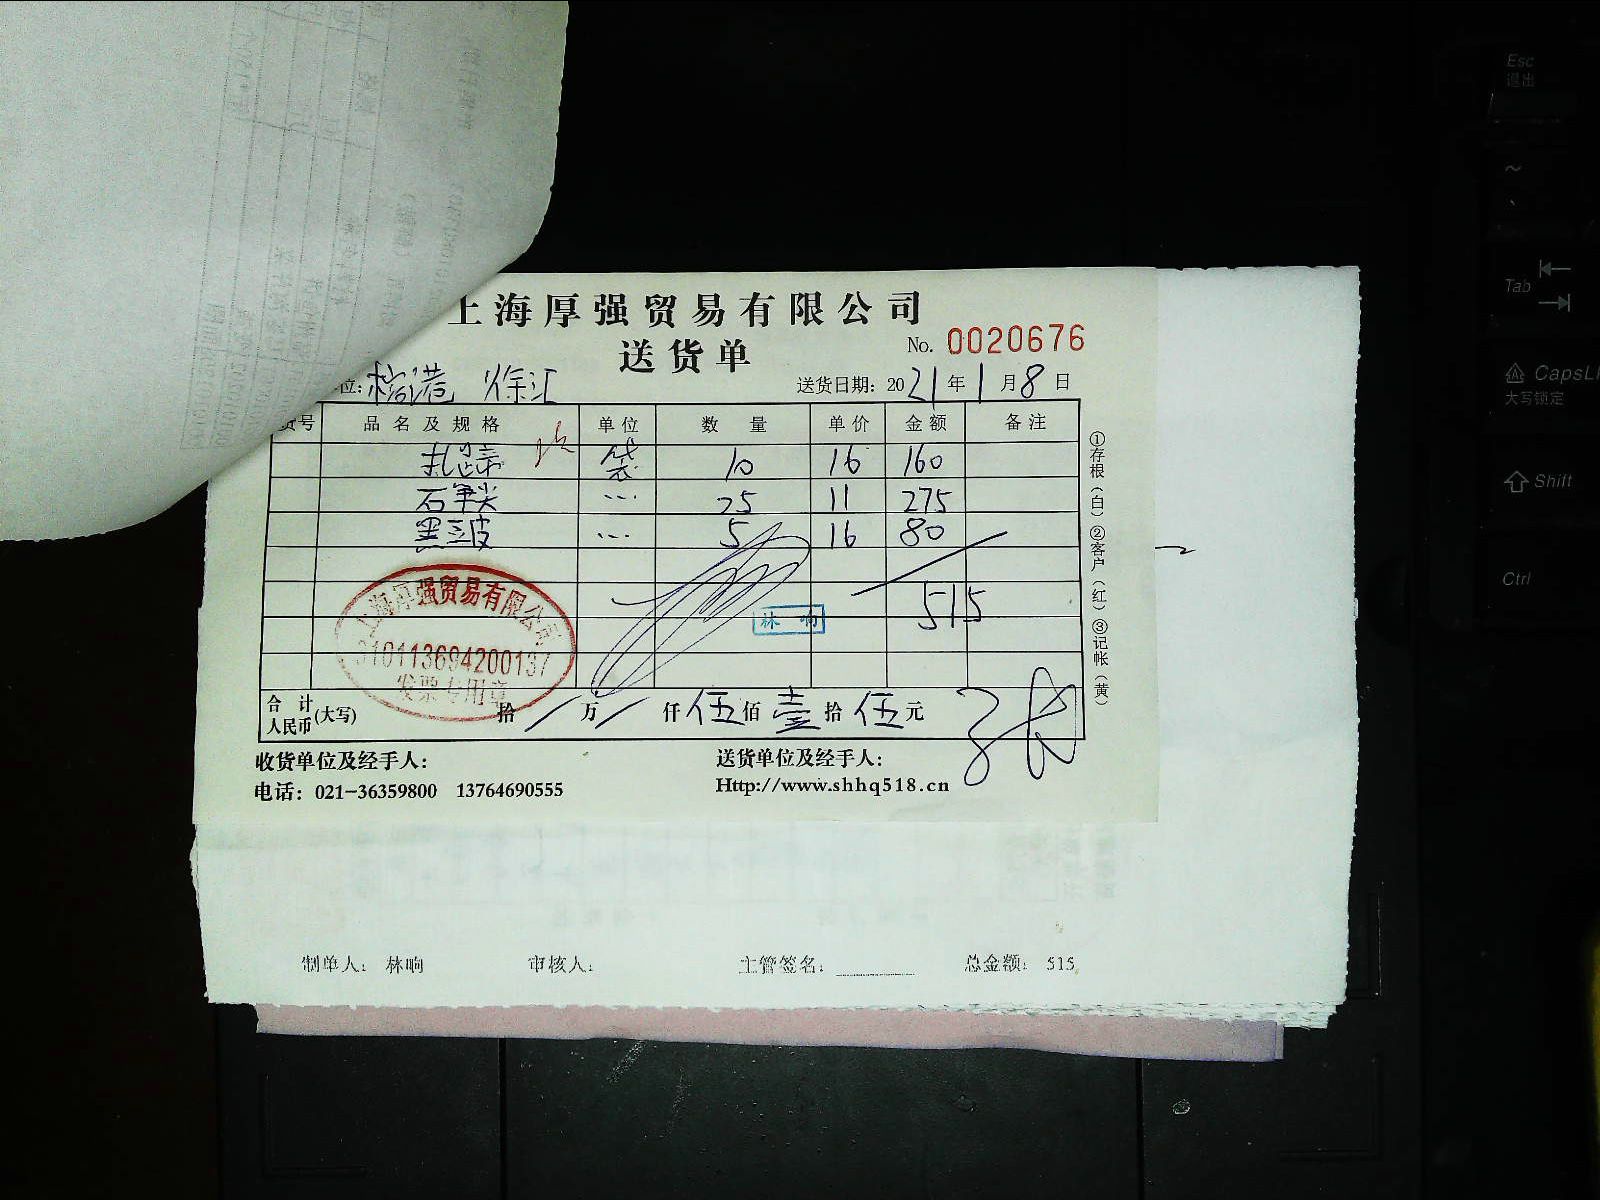 上海厚强贸易有限公司
送货单
No. 0020676
位: 徐汇
送货日期: 2021年1月8日
货号 品名及规格 单位 数量 单价 金额 备注
扎蹄 袋 10 16 160
石笋尖 … 25 11 275
黑三皮 … 5 16 80
515
林响
上海厚强贸易有限公司
310113694200137
发票专用章
合计人民币(大写) 拾 / 万 / 仟 伍 佰 壹 拾 伍 元
①存根(白)②客户(红)③记帐(黄)
收货单位及经手人:
送货单位及经手人:
电话: 021-36359800 13764690555
Http://www.shhq518.cn
制单人: 林响 审核人: 主管签名: 总金额: 515
Esc
退出
~
Tab
CapsL
大写锁定
Shift
Ctrl